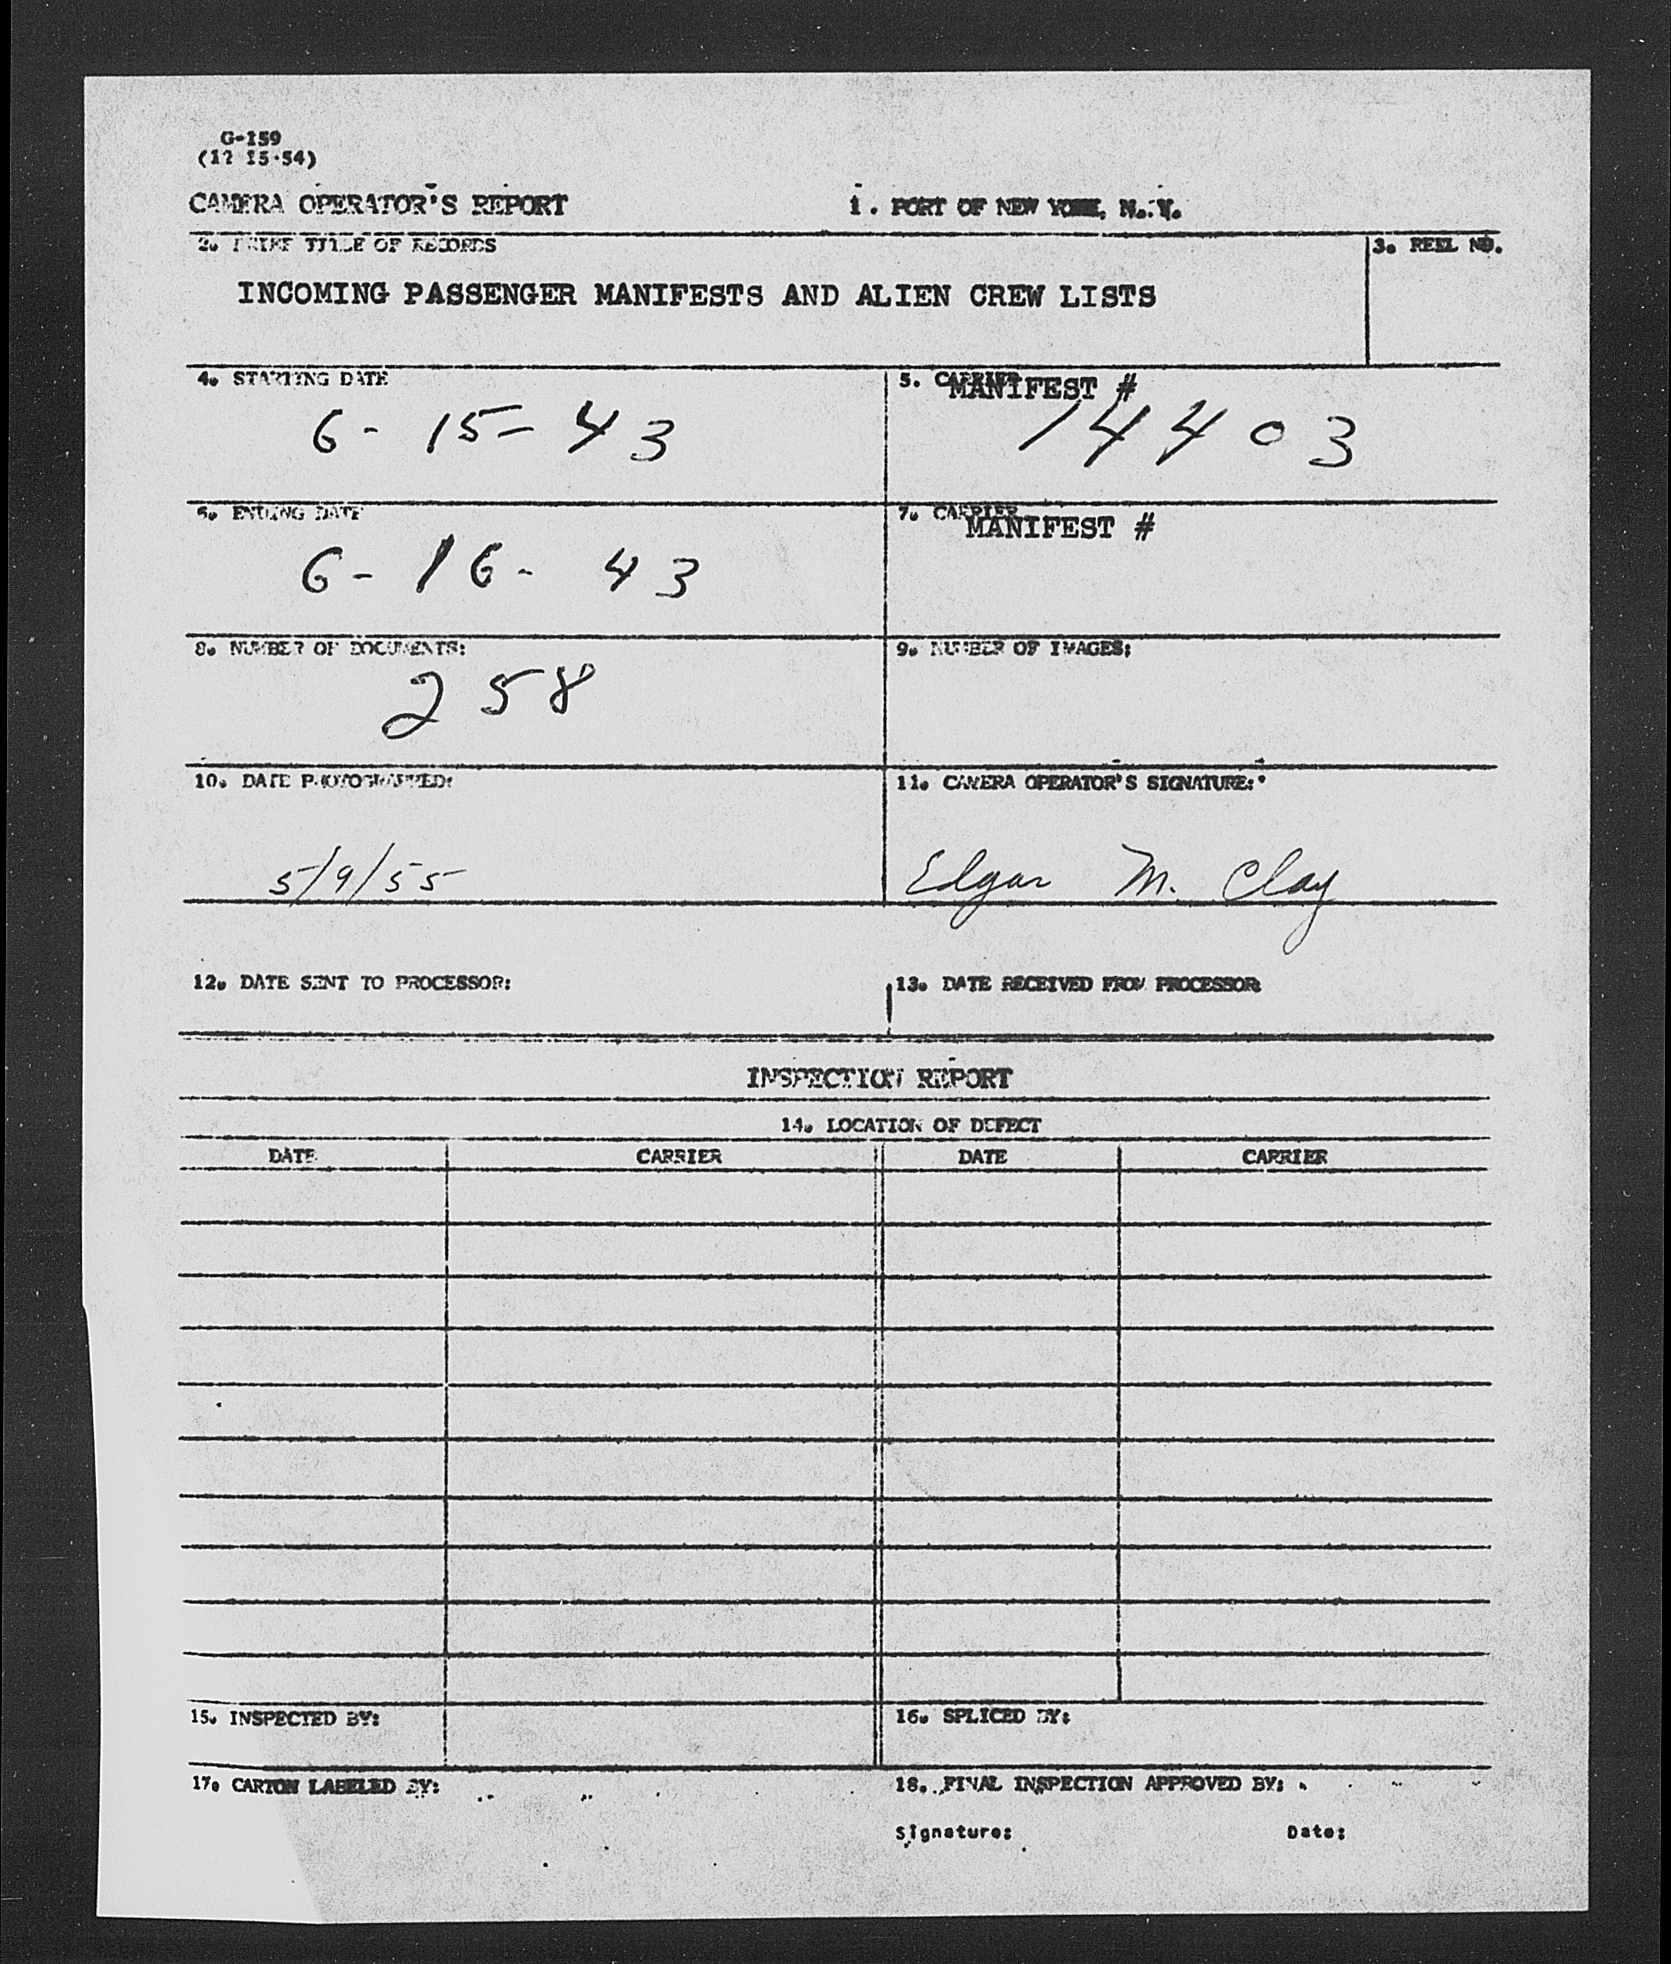 G-159
(12 15-54)
CAMERA OPERATOR'S REPORT 1. PORT OF NEW YORK, N.Y.
2. BRIEF TITLE OF RECORDS 3. REEL NO.
INCOMING PASSENGER MANIFESTS AND ALIEN CREW LISTS
4. STARTING DATE 5. CARRIER MANIFEST #
6-15-43 14403
6. ENDING DATE 7. CARRIER MANIFEST #
6-16-43
8. NUMBER OF DOCUMENTS: 9. NUMBER OF IMAGES:
258
10. DATE PHOTOGRAPHED: 11. CAMERA OPERATOR'S SIGNATURE:
5/9/55 Edgar M. Clay
12. DATE SENT TO PROCESSOR: 13. DATE RECEIVED FROM PROCESSOR
INSPECTION REPORT
14. LOCATION OF DEFECT
DATE CARRIER DATE CARRIER
15. INSPECTED BY: 16. SPLICED BY:
17. CARTON LABELED BY: 18. FINAL INSPECTION APPROVED BY:
Signature: Date: